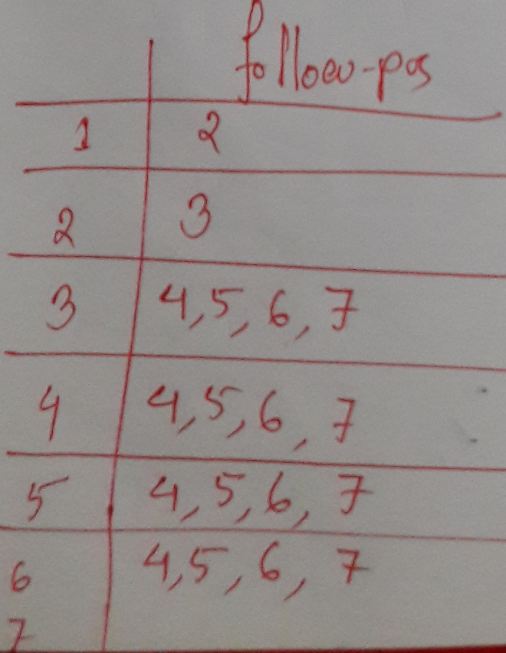 follow-pos
1 2
2 3
3 4,5,6,7
4 4,5,6,7
5 4,5,6,7
6 4,5,6,7
7